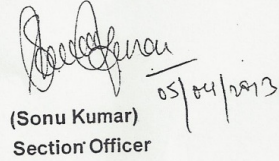 05/04/2013
(Sonu Kumar)
Section Officer